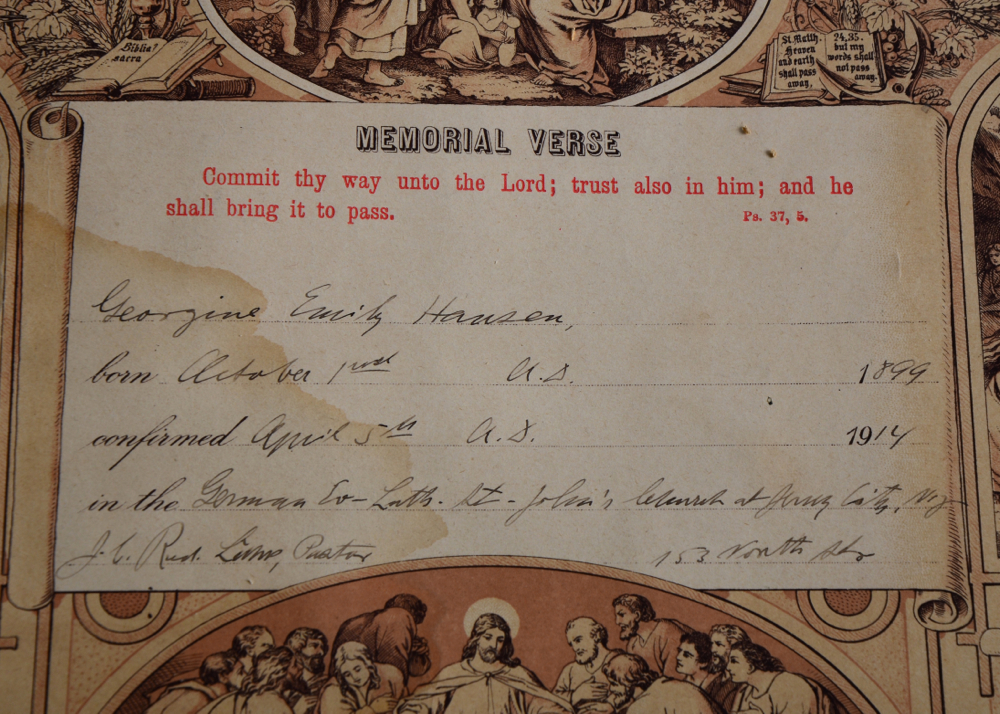 Biblia
sacra
St. Matth. 24,35.
Heaven but my
and earth words shall
shall pass not pass
away, away.
MEMORIAL VERSE
Commit thy way unto the Lord; trust also in him; and he
shall bring it to pass. Ps. 37, 5.
Georgine Emily Hansen,
born October A.D. 1899
confirmed April 5th A.D. 1914
in the German Ev-Luth. St-John's Church at Jersey City, N.J.
J. C. Rud. Pastor 153 North Str